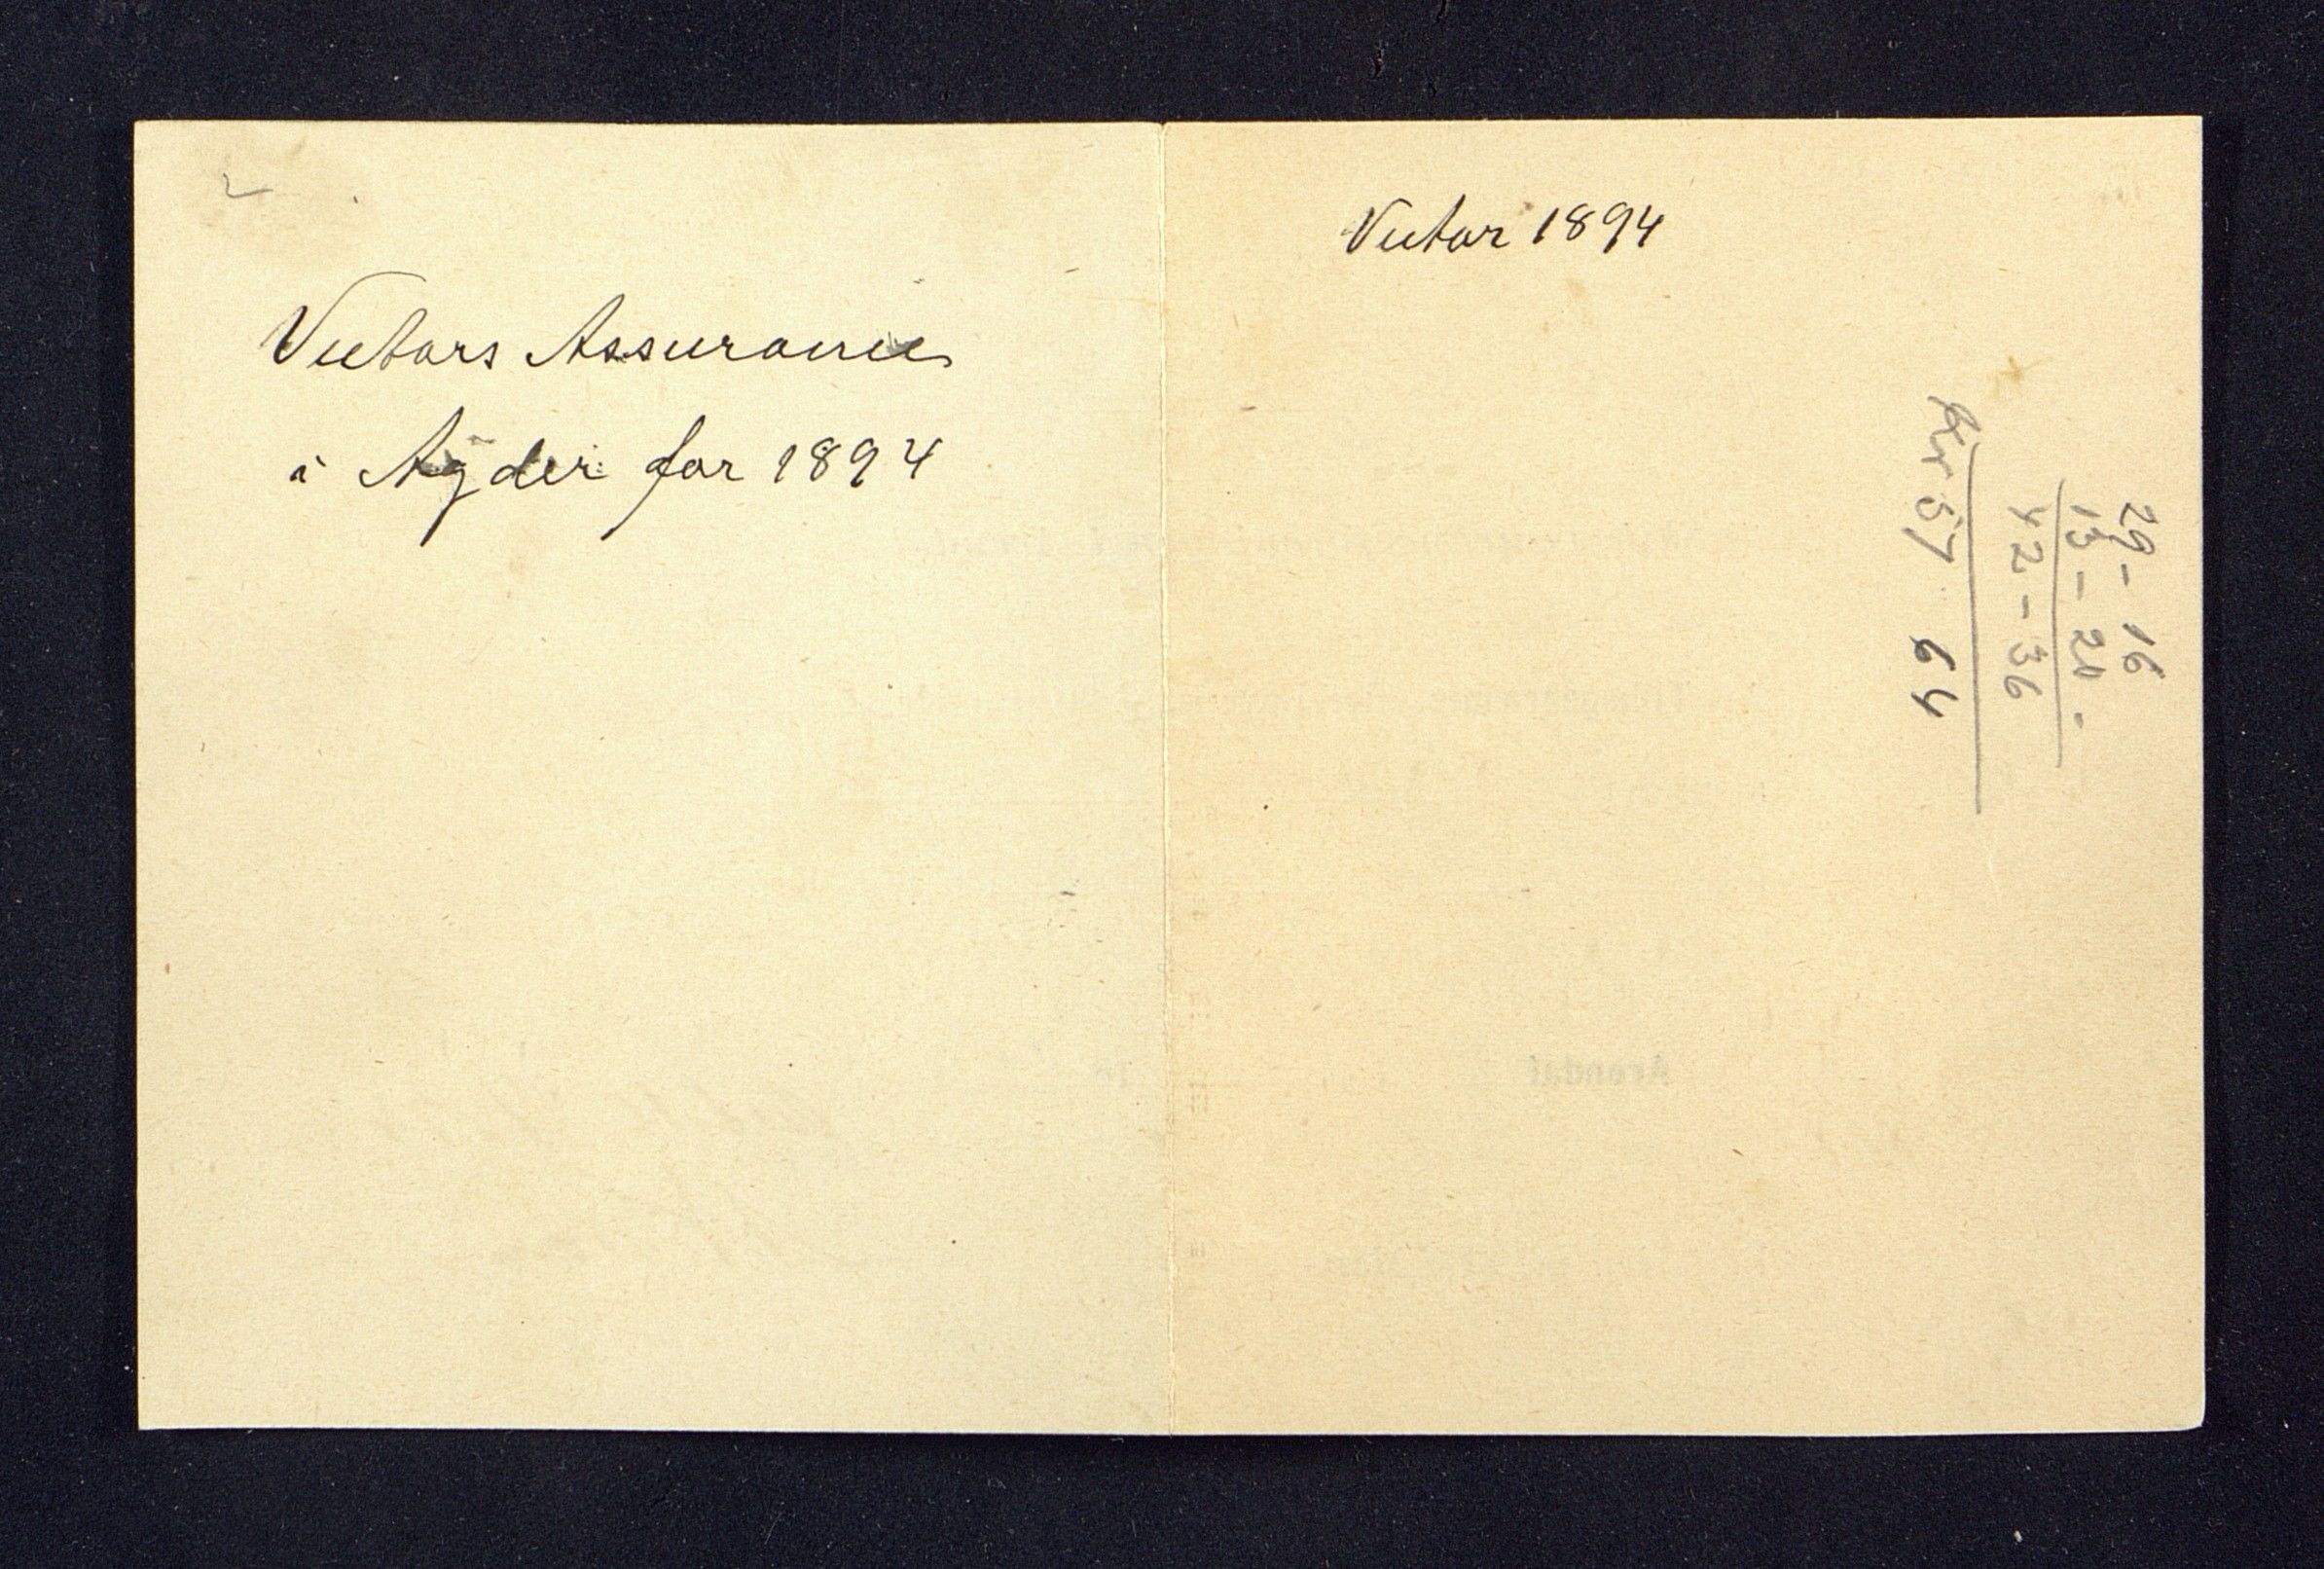 Victors Assurance
i Agder for 1894
Victor 1894
29 - 16
13 - 20 -
42 - 36
Kr 57 64